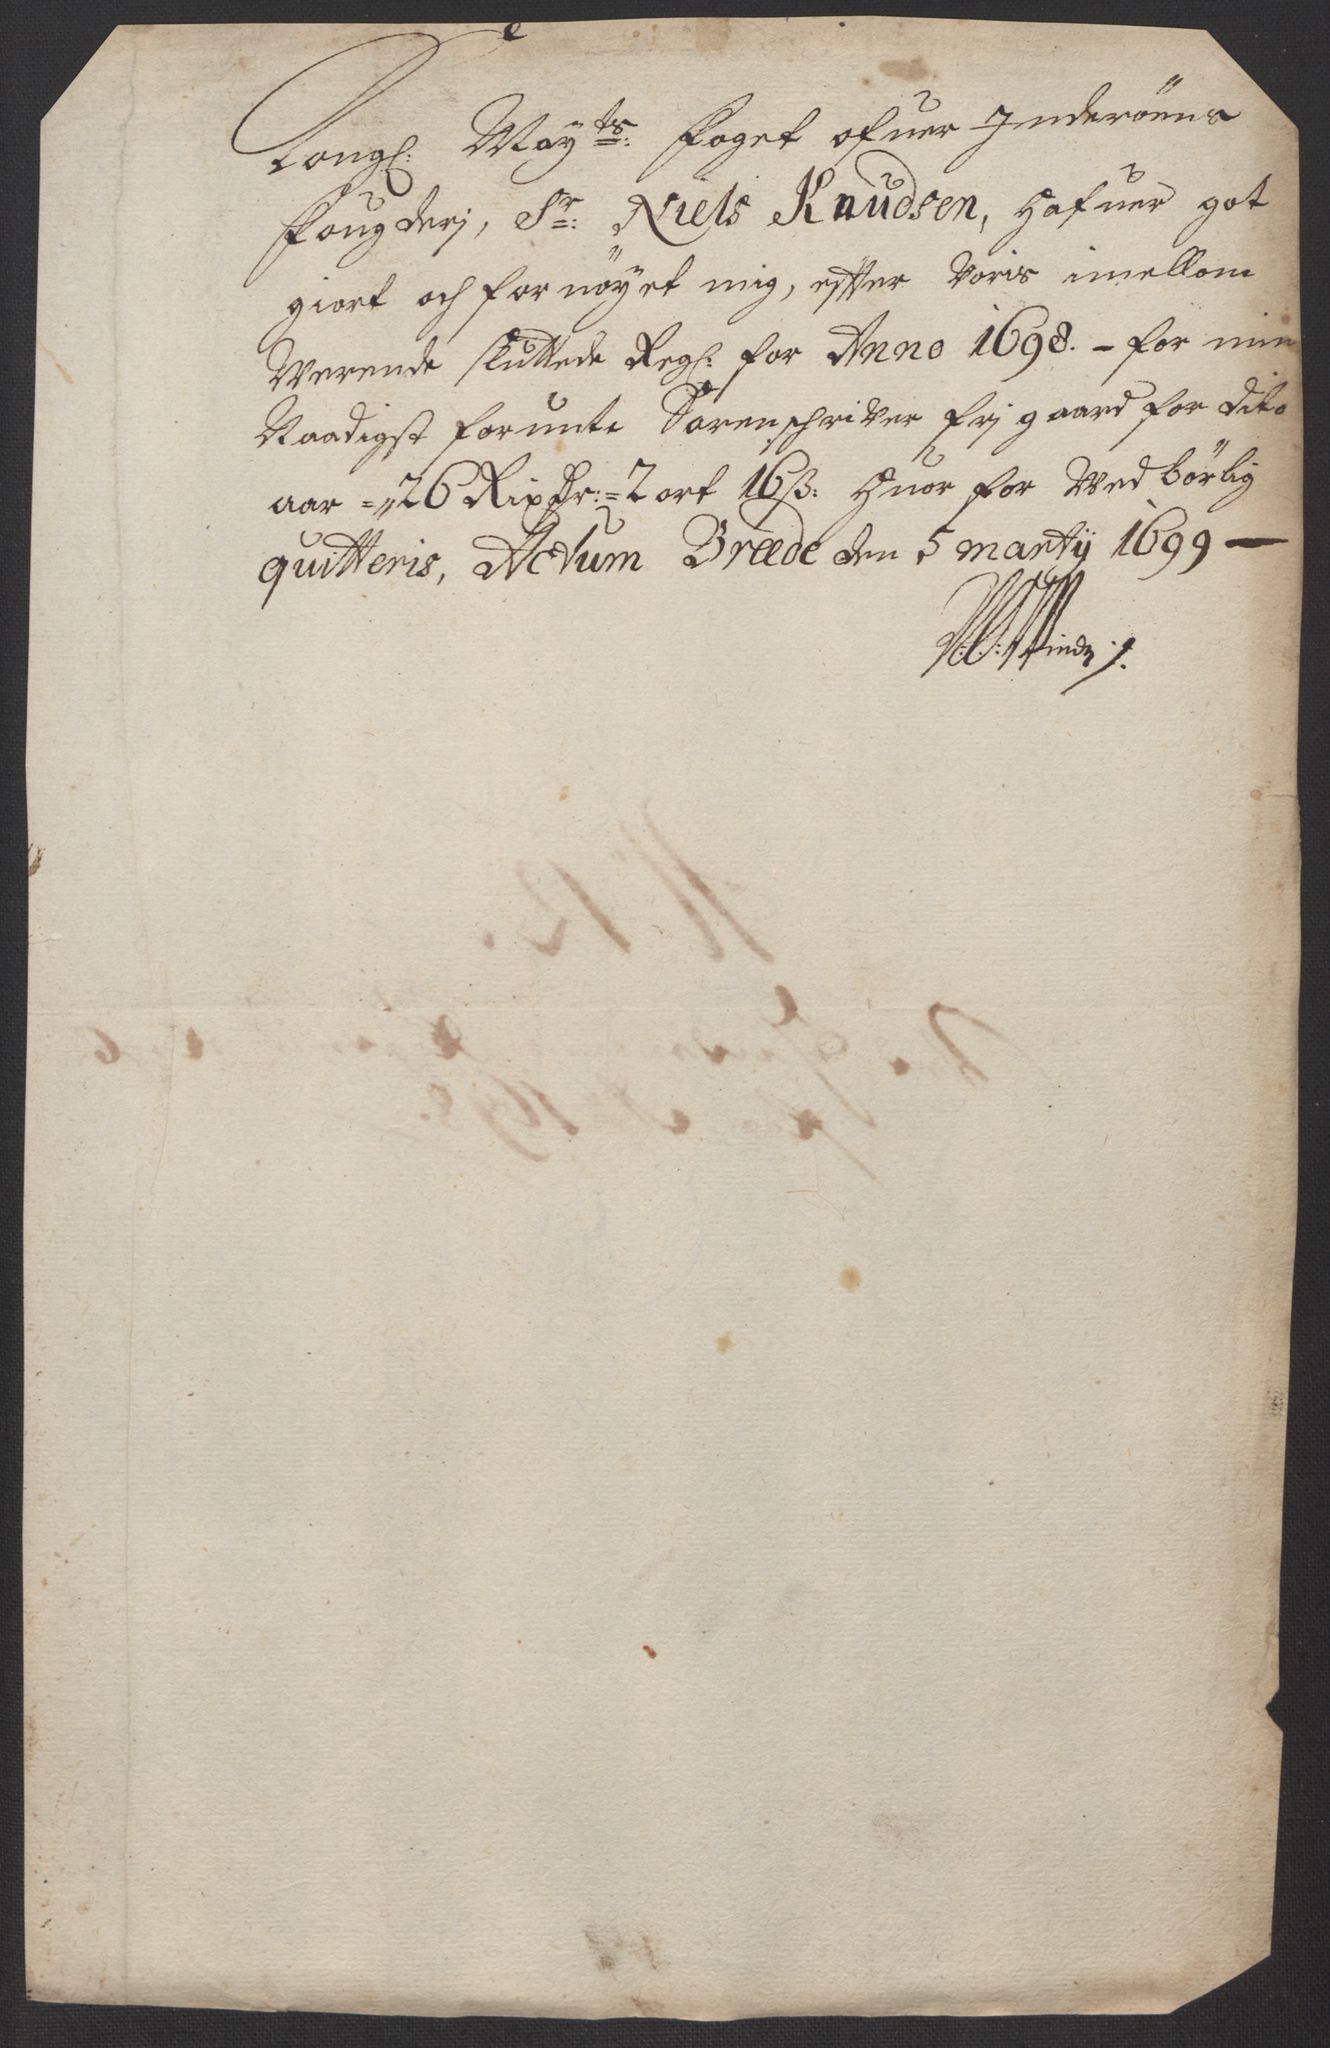 Kongl: May:ts: foget ofuer Inderöens
fougderj, Sr: Niels Knudsen, hafuer got
giort och fornöyet mig, effter Voris imellom
Verende sluttede Regl: for Anno 1698. - for min
Naadigst forunte Sorenschriver frj gaard for dito
aar = 26 Rixdr: = 2 ort 16 ß: Huor for Ved börlig
quitteris, Actum Breede den 5 martij 1699 —
No 12.
1698.